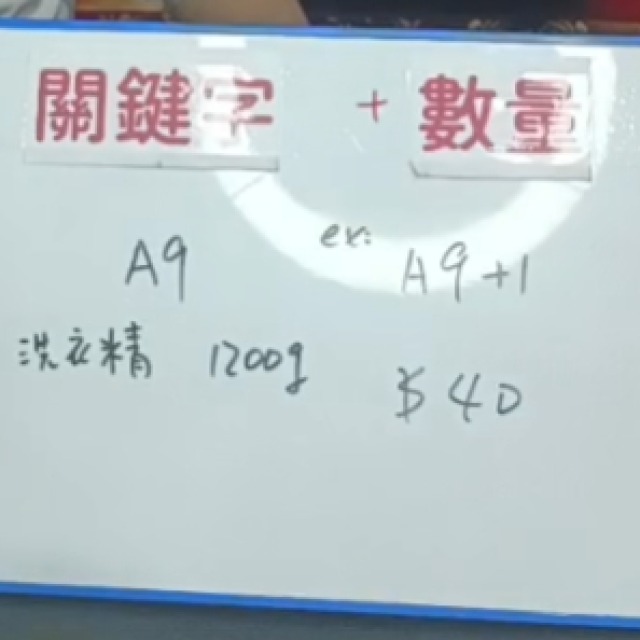 關鍵字 + 數量
A9 ex: A9+1
洗衣精 1200g $40